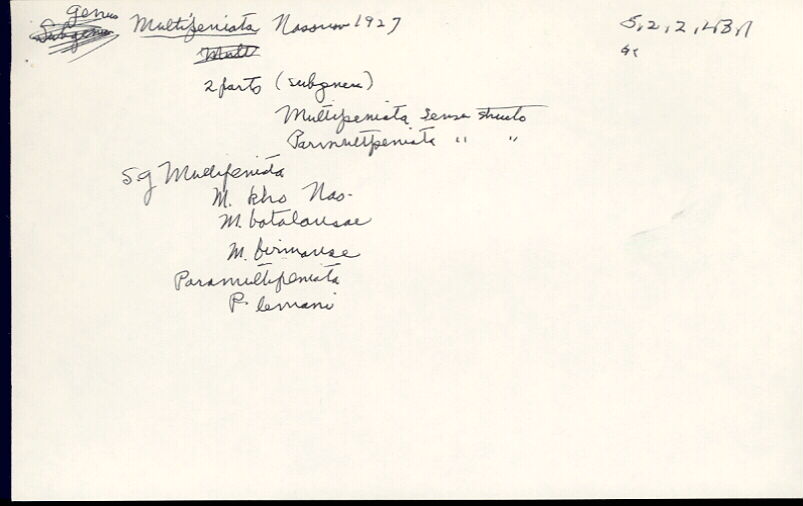 genus
Subgenus Multipeniata Nasonov 1927
Mult
2 parts (subgenera)
Multipeniata sensu stricto
Parmultipeniata " "
S g Multipeniata
M. kho Nas.
M. batalansae
M. birmanse
Paramultipeniata
P. lemani
5, 2, 2,